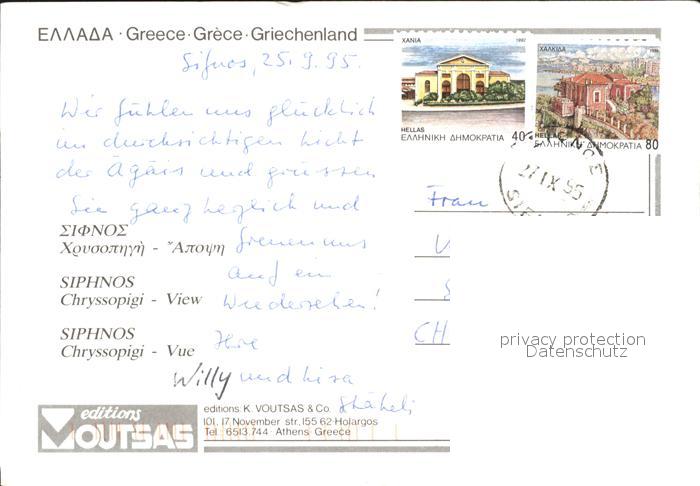 ΕΛΛΑΔΑ · Greece · Grèce · Griechenland
Sifnos, 25.9.95.
ΧΑΝΙΑ 1992
HELLAS 40
ΕΛΛΗΝΙΚΗ ΔΗΜΟΚΡΑΤΙΑ
ΧΑΛΚΙΔΑ
HELLAS
ΕΛΛΗΝΙΚΗ ΔΗΜΟΚΡΑΤΙΑ 80
27 IX 95
Wir fühlen uns glücklich
im durchsichtigen Licht
der Ägäis und grüssen
Sie ganz herzlich und
freuen uns
auf ein
Wiedersehen!
Ihre
Willy und Lisa
Stäheli
Frau
CH
ΣΙΦΝΟΣ
Χρυσοπηγὴ - Ἄποψη
SIPHNOS
Chryssopigi - View
SIPHNOS
Chryssopigi - Vue
privacy protection
Datenschutz
editions
VOUTSAS
editions: K. VOUTSAS & Co.
101, 17 November str. 155 62 Holargos
Tel. 6513.744 - Athens Greece